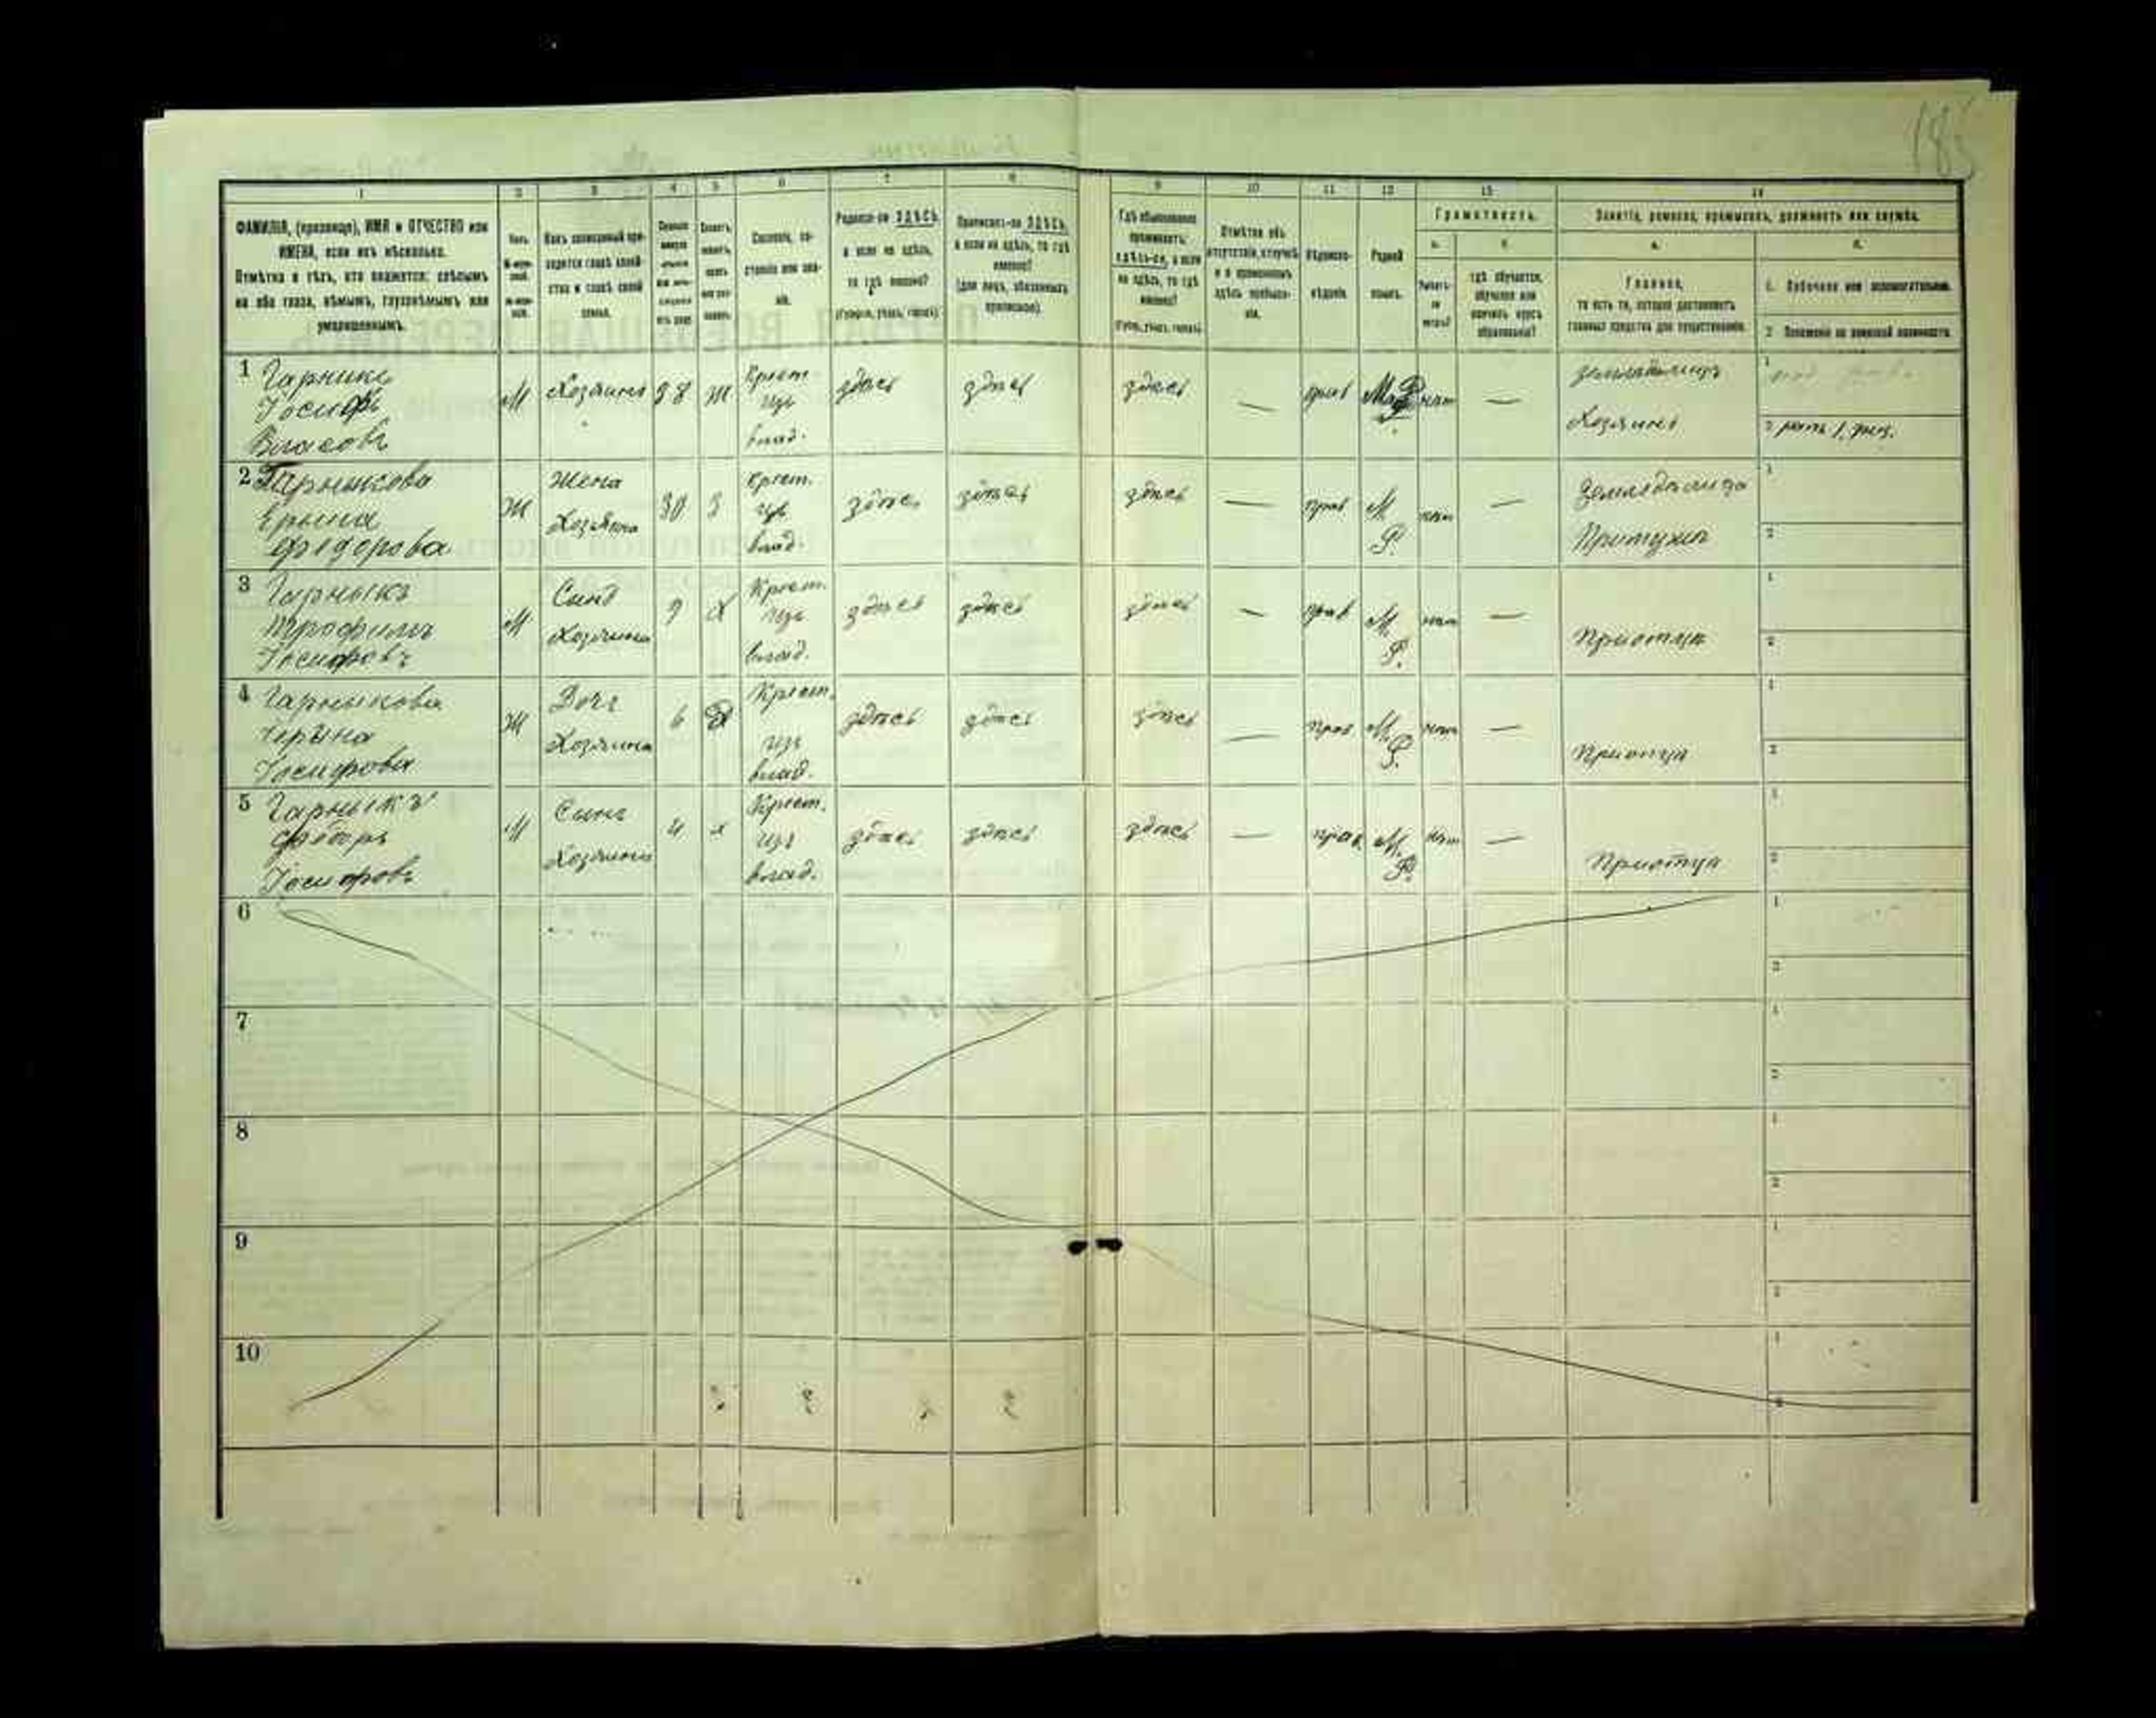 1 2 3 4 5 6 7 8 9 10 11 12 13 14
ФАМИЛІЯ, (прозвище), ИМЯ и ОТЧЕСТВО или
ИМЕНА, если ихъ нѣсколько.
Отмѣтка о тѣхъ, кто окажется: слѣпымъ
на оба глаза, нѣмымъ, глухонѣмымъ или
умалишеннымъ.
Полъ.
Какъ записанный при-
ходится главѣ хозяй-
ства и главѣ своей
семьи.
Сословіе, со-
стояніе или зва-
ніе.
Родился-ли ЗДѢСЬ,
а если не здѣсь,
то гдѣ именно?
(Губернія, уѣздъ, городъ).
Приписанъ-ли ЗДѢСЬ,
а если не здѣсь, то гдѣ
именно?
(для лицъ, обязанныхъ
припиской).
Гдѣ обыкновенно
проживаетъ:
здѣсь-ли, а если
не здѣсь, то гдѣ
именно?
(Губ., уѣздъ, городъ).
Отмѣтка объ
отсутствіи, отлучкѣ
и о временномъ
здѣсь пребыва-
ніи.
Вѣроиспо-
вѣданіе.
Родной
языкъ.
Грамотность.
а.
Умѣетъ-
ли
читать?
б.
гдѣ обучается,
обучался или
кончилъ курсъ
образованія?
Занятіе, ремесло, промыселъ, должность или служба.
а.
Главное,
то есть то, которое доставляетъ
главныя средства для существованія.
б.
1. Побочное или вспомогательное.
2. Положеніе по воинской повинности.
1 Гарникъ
Іосифъ
Власовъ
М Хозяинъ 38 Ж
Крест.
изъ
влад.
здѣсь здѣсь здѣсь — прав нѣт —
Хозяинъ
1
2
2 Гарныкова
Ерына
Федорова
Ж
Жена
Хозяина
30 З
Крест.
изъ
влад.
здѣсь здѣсь здѣсь — прав
М.
Р.
нѣт —
Примужѣ
1
2
3 Гарныкъ
Трофимъ
Іосифовъ
М
Сынъ
Хозяина
9 Х
Крест.
изъ
влад.
здѣсь здѣсь здѣсь — прав
М.
Р.
нѣт —
Приотца
1
2
4 Гарныкова
Іосифова
Ж
Дочь
Хозяина
6
Крест.
изъ
влад.
здѣсь здѣсь здѣсь — прав
М.
Р.
нѣт —
Приотца
1
2
5 Гарныкъ
Іосифовъ
М
Сынъ
Хозяина
4 х
Крест.
изъ
влад.
здѣсь здѣсь здѣсь — прав
М.
Р.
нѣт —
Приотца
1
2
6 1
2
7 1
2
8 1
2
9 1
2
10 1
2